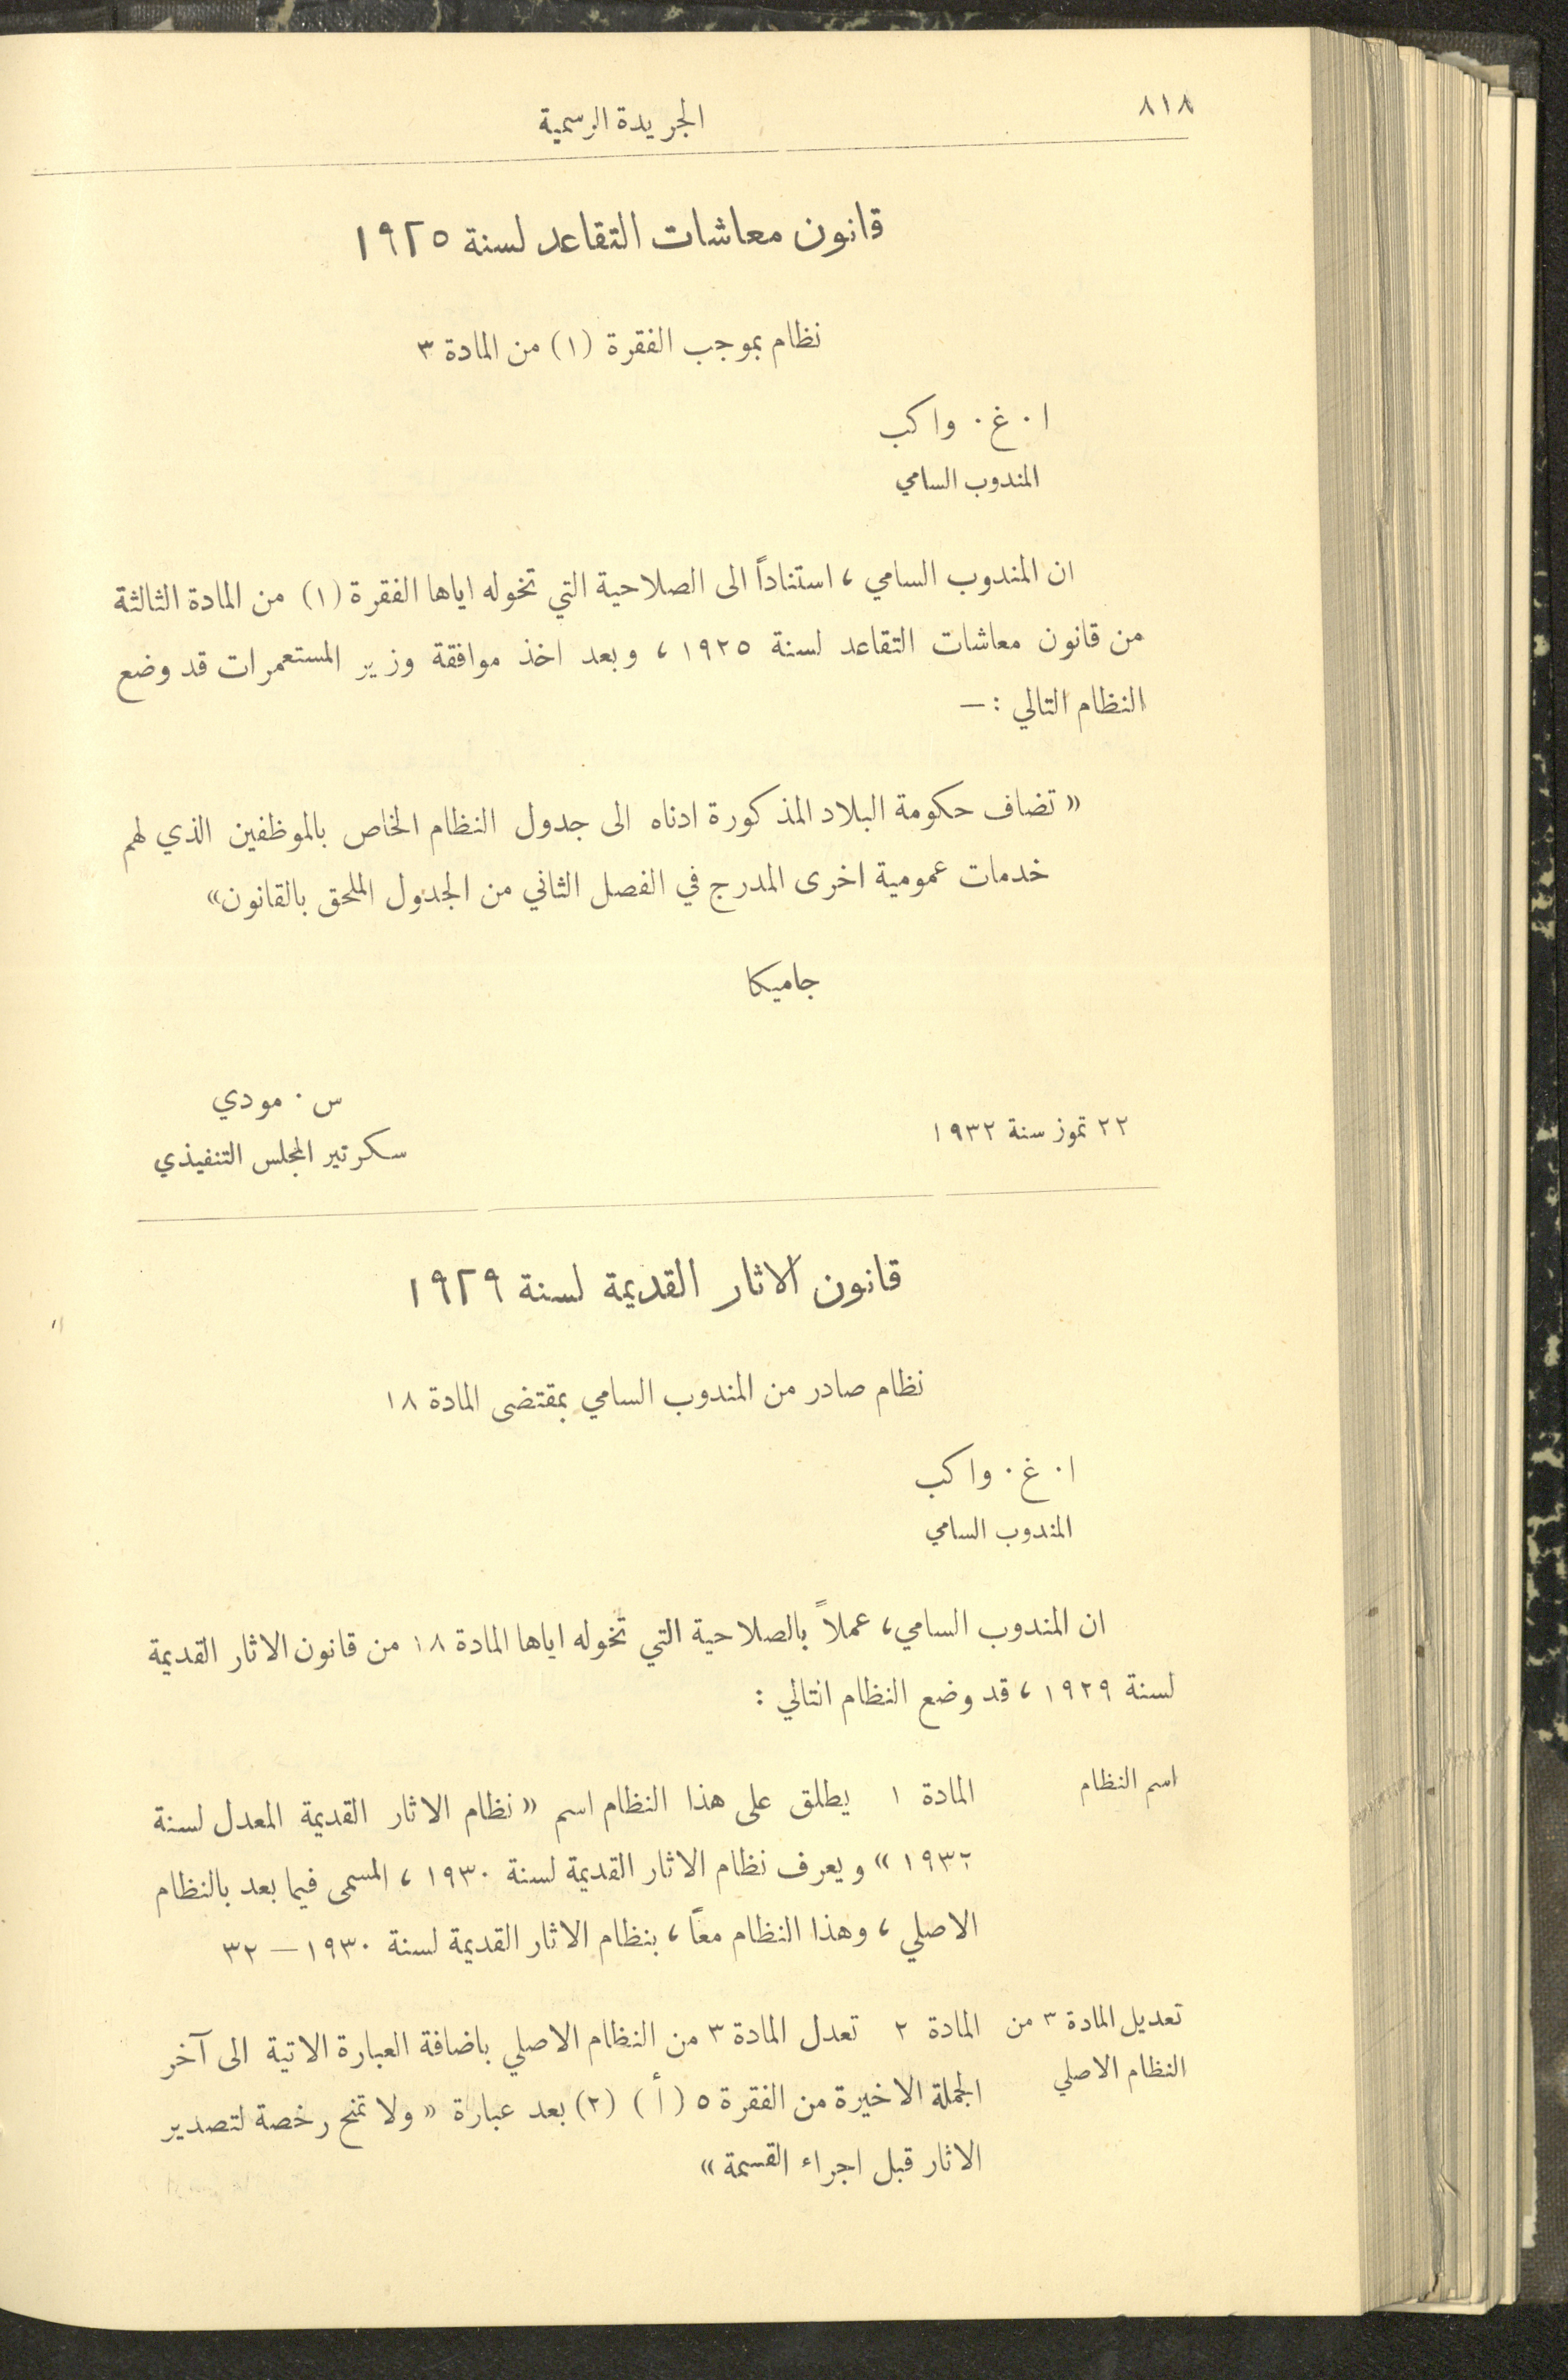 ٨١٨
الجريدة الرسمية
قانون معاشات التقاعد لسنة ١٩٢٥
نظام بموجب الفقرة (١) من المادة ٣
ا. غ. واكب
المندوب السامي
ان المندوب السامي، استناداً الى الصلاحية التي تخوله اياها الفقرة (١) من المادة الثالثة
من قانون معاشات التقاعد لسنة ١٩٢٥، وبعد اخذ موافقة وزير المستعمرات قد وضع
النظام التالي : —
« تضاف حكومة البلاد المذكورة ادناه الى جدول النظام الخاص بالموظفين الذي لهم
خدمات عمومية اخرى المدرج في الفصل الثاني من الجدول الملحق بالقانون»
جاميكا
س. مودي
٢٢ تموز سنة ١٩٣٢
سكرتير المجلس التنفيذي
قانون الاثار القديمة لسنة ١٩٢٩
نظام صادر من المندوب السامي بمقتضى المادة ١٨
ا. غ. واكب
المندوب السامي
ان المندوب السامي، عملاً بالصلاحية التي تخوله اياها المادة ١٨ من قانون الاثار القديمة
لسنة ١٩٢٩، قد وضع النظام التالي :
اسم النظام
المادة ١ يطلق على هذا النظام اسم « نظام الاثار القديمة المعدل لسنة
١٩٣٢ » ويعرف نظام الاثار القديمة لسنة ١٩٣٠، المسمى فيما بعد بالنظام
الاصلي، وهذا النظام معاً، بنظام الاثار القديمة لسنة ١٩٣٠ — ٣٢
تعديل المادة ٣ من
النظام الاصلي
المادة ٢ تعدل المادة ٣ من النظام الاصلي باضافة العبارة الاتية الى آخر
الجملة الاخيرة من الفقرة ٥ (أ) (٢) بعد عبارة « ولا تمنح رخصة لتصدير
الاثار قبل اجراء القسمة »